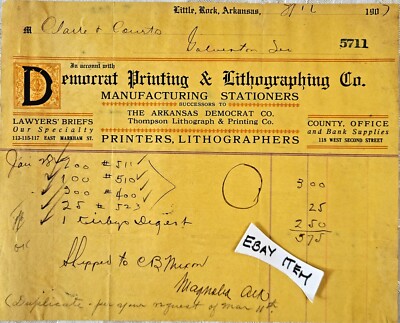 Little, Rock, Arkansas, 3/12 190
M Clark & Counts
5711
In account with
Democrat Printing & Lithographing Co.
MANUFACTURING STATIONERS
SUCCESSORS TO
THE ARKANSAS DEMOCRAT CO.
Thompson Lithograph & Printing Co.
LAWYERS' BRIEFS
Our Specialty
113-115-117 EAST MARKHAM ST.
COUNTY, OFFICE
and Bank Supplies
118 WEST SECOND STREET
PRINTERS, LITHOGRAPHERS
Jan 28 200 # 511
100 # 510
300 # 400 3 00
25 # 523 25
1 Kirbys Digest 2 50
5 75
Shipped to C B Nixon
Magnolia Ark
(Duplicate - per your request of Mar 11th)
EBAY ITEM